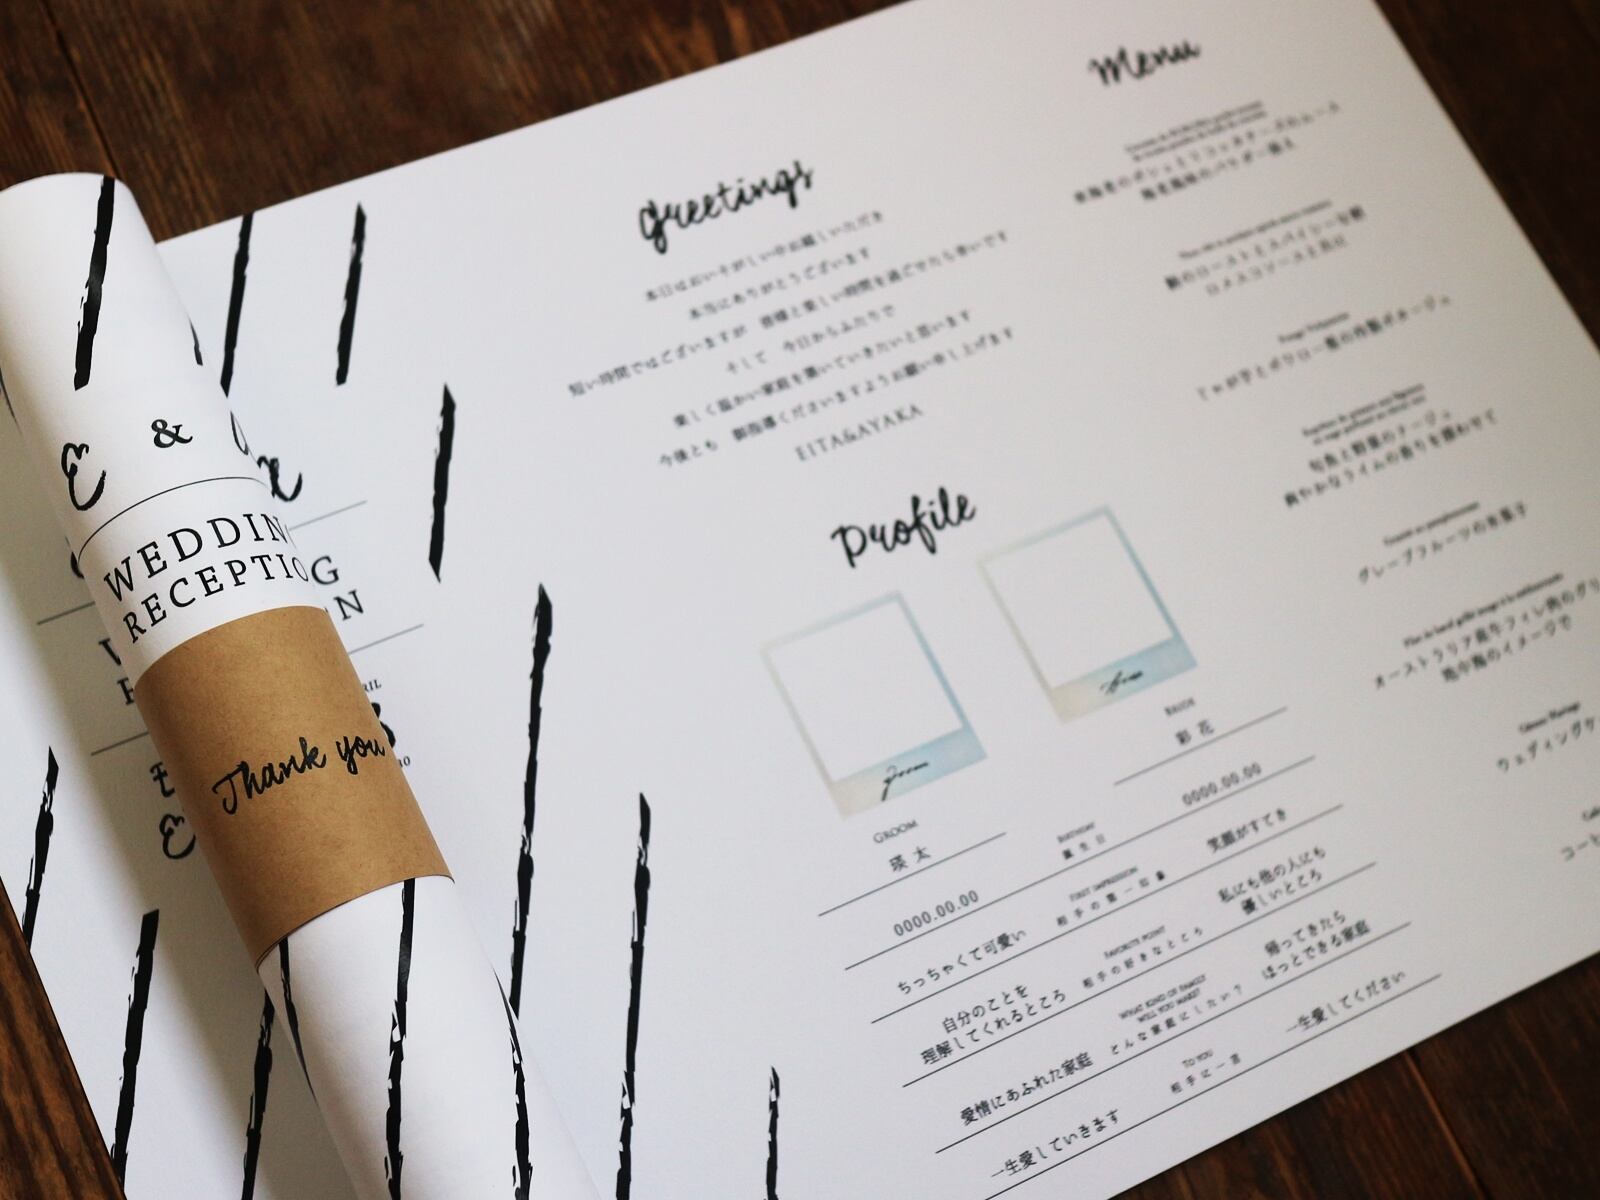 E &
WEDDIN
RECEPTIO
Thank you
G
N
RIL
Greetings
本日はおいそがしい中お越しいただき
本当にありがとうございます
短い時間ではございますが 皆様と楽しい時間を過ごせたら幸いです
そして 今日からふたりで
楽しく温かい家庭を築いていきたいと思います
今後とも 御指導くださいますようお願い申し上げます
EITA&AYAKA
Profile
groom
GROOM
瑛太
BRIDE
彩花
0000.00.00
BIRTHDAY
誕生日
0000.00.00
ちっちゃくて可愛い
FIRST IMPRESSION
相手の第一印象
笑顔がすてき
自分のことを
理解してくれるところ
FAVORITE POINT
相手の好きなところ
私にも他の人にも
優しいところ
愛情にあふれた家庭
WHAT KIND OF FAMILY
WILL YOU MAKE?
どんな家庭にしたい？
帰ってきたら
ほっとできる家庭
一生愛していきます
TO YOU
相手に一言
一生愛してください
Menu
海老風味のパウダー添え
鴨のローストとスパイシーな
ロメスコソースと共に
旬魚と野菜のナージュ
爽やかなライムの香りを
グレープフルーツのお菓子
オーストラリア産牛フィレ肉のグリ
地中海のイメージで
ウェディングケ
コーヒ